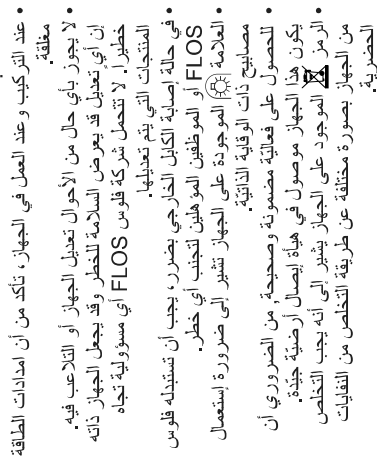 • عند التركيب وعند العمل في الجهاز، تأكد من أن امدادات الطاقة
مغلقة.
• لا يجوز بأي حال من الأحوال تعديل الجهاز أو التلاعب فيه.
إن أي تعديل قد يعرض السلامة للخطر وقد يجعل الجهاز ذاته
خطيرا. لا تتحمل شركة فلوس FLOS أي مسؤولية تجاه
المنتجات التي يتم تعديلها.
• في حالة إصابة الكابل الخارجي بضرر، يجب أن تستبدله فلوس
FLOS أو الموظفين المؤهلين لتجنب أي خطر.
• العلامة الموجودة على الجهاز تشير إلى ضرورة إستعمال
مصابيح ذات الوقاية الذاتية.
• للحصول على فعالية مضمونة وصحيحة، من الضروري أن
يكون هذا الجهاز موصول في هيأة إيصال أرضية جيّدة.
• الرمز الموجود على الجهاز يشير إلى أنه يجب التخلص
من الجهاز بصورة مختلفة عن طريقة التخلص من النفايات
الحضرية.